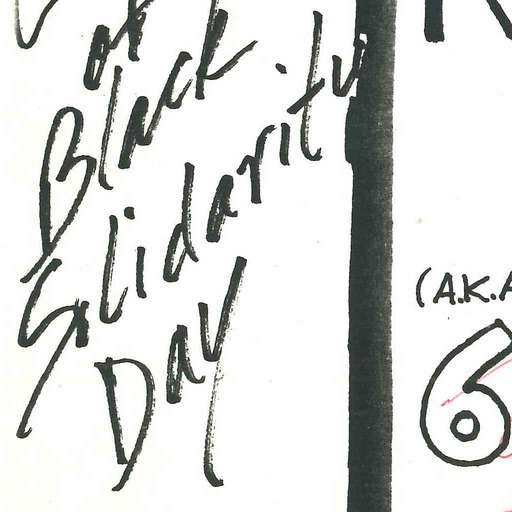 of
Black
Solidarity
Day
(A.K.A
6